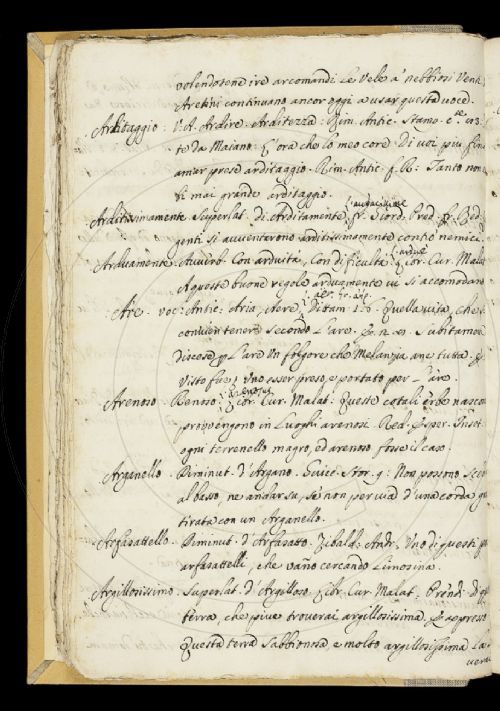 volendosene ire arcomandi Le Vele a' nebbiosi Venti
Aretini continuano ancor oggi a usar questa voce.
Arditaggio: V.A. Ardire. Arditezza: Rim. Antic.
te da Maiano: L'ora che lo meo core. Di voi piu fina
amar prese arditaggio. Rim. Antic. f. R: Tanto non
Si mai grande arditaggio.
Arditissimamente Superlat. di Arditamente. fr. Giord. Pred. fr. Red.
genti si avventarono arditissimamente contro nemici.
Arduamente. Avverb. Con arduità, Con dificultà. Libr. Cur. Malat.
A queste buone regole arduamente vi si accomodano
Are. voc: Antic: Aria, Aere. Dittam. 1.6. Quella vita, che
convien tenere Secondo L'are. Subitamen
discese L'are Un folgore che
Visto fue Uno esser preso, e portato per L'are.
Arenoso. Renoso: Libr. Cur. Malat: Queste cotali erbe nascon
provengono in Luoghi arenosi. Red. Esper. Inset.
ogni terrenello magro, ed arenoso fosse il caso.
Arganello. Diminut. d'Argano. Guicc. Stor. 9: Non possono
al basso, ne andar su, se non per via d'una corda
tirata con un Arganello.
Arfasattello. Diminut. d'Arfasatto. Zibald: Andr. Uno di questi
arfasattelli, che vano cercando Limosina.
Argillosissimo. Superlat. d'Argilloso. Libr. Cur. Malat: Prendi. Di
terra, che piue troverai argillosissima. E appresso
Questa terra Sabbionosa, e molto argillosissima La
verai